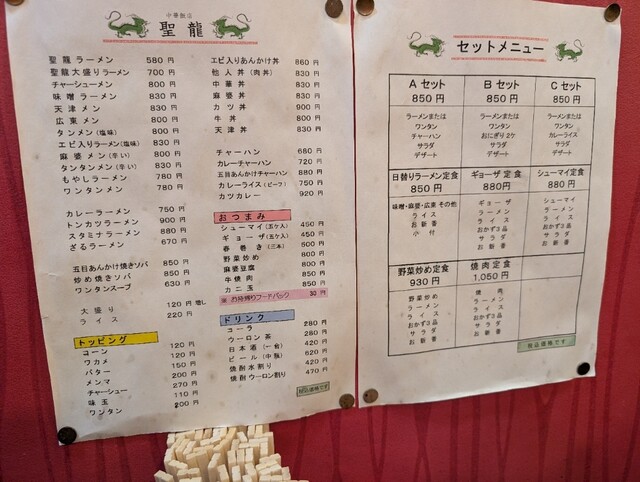 中華飯店
聖龍
聖龍ラーメン 580円
聖龍大盛りラーメン 700円
チャーシューメン 800円
味噌ラーメン 800円
天津メン 800円
広東メン 800円
タンメン(塩味) 800円
エビ入りラーメン(塩味) 830円
麻婆メン(辛い) 800円
タンタンメン(辛い) 830円
もやしラーメン 750円
ワンタンメン 780円
カレーラーメン 750円
トンカツラーメン 900円
スタミナラーメン 880円
ざるラーメン 670円
五目あんかけ焼きソバ 850円
炒め焼きソバ 850円
ワンタンスープ 630円
大盛り 120円増し
ライス 220円
トッピング
コーン 120円
ワカメ 120円
バター 200円
メンマ 270円
チャーシュー 110円
味玉 200円
ワンタン
エビ入りあんかけ丼 860円
他人丼(肉丼) 830円
中華丼 830円
麻婆丼 830円
カツ丼 900円
牛丼 830円
天津丼 830円
チャーハン 680円
カレーチャーハン 720円
五目あんかけチャーハン 880円
カレーライス(ビーフ) 750円
カツカレー 920円
おつまみ
シューマイ(五ケ入) 450円
ギョーザ(五ケ入) 450円
春巻き(三本) 600円
野菜炒め 600円
麻婆豆腐 600円
牛焼肉 850円
カニ玉 850円
※お持帰りフードパック 30円
ドリンク
コーラ 280円
ウーロン茶 280円
日本酒(一合) 420円
ビール(中瓶) 620円
焼酎水割り 420円
焼酎ウーロン割り 470円
税込価格です
セットメニュー
Aセット
850円
ラーメンまたは
ワンタン
チャーハン
サラダ
デザート
Bセット
850円
ラーメンまたは
ワンタン
おにぎり2ケ
サラダ
デザート
Cセット
850円
ラーメンまたは
ワンタン
カレーライス
サラダ
デザート
日替りラーメン定食
850円
味噌・麻婆・広東その他
ライス
お新香
小付
ギョーザ定食
880円
ギョーザ
ラーメン
ライス
おかず3品
サラダ
お新香
シューマイ定食
880円
シューマイ
ラーメン
ライス
おかず3品
サラダ
お新香
野菜炒め定食
930円
野菜炒め
ラーメン
ライス
おかず3品
サラダ
お新香
焼肉定食
1,050円
焼肉
ラーメン
ライス
おかず3品
サラダ
お新香
税込価格です